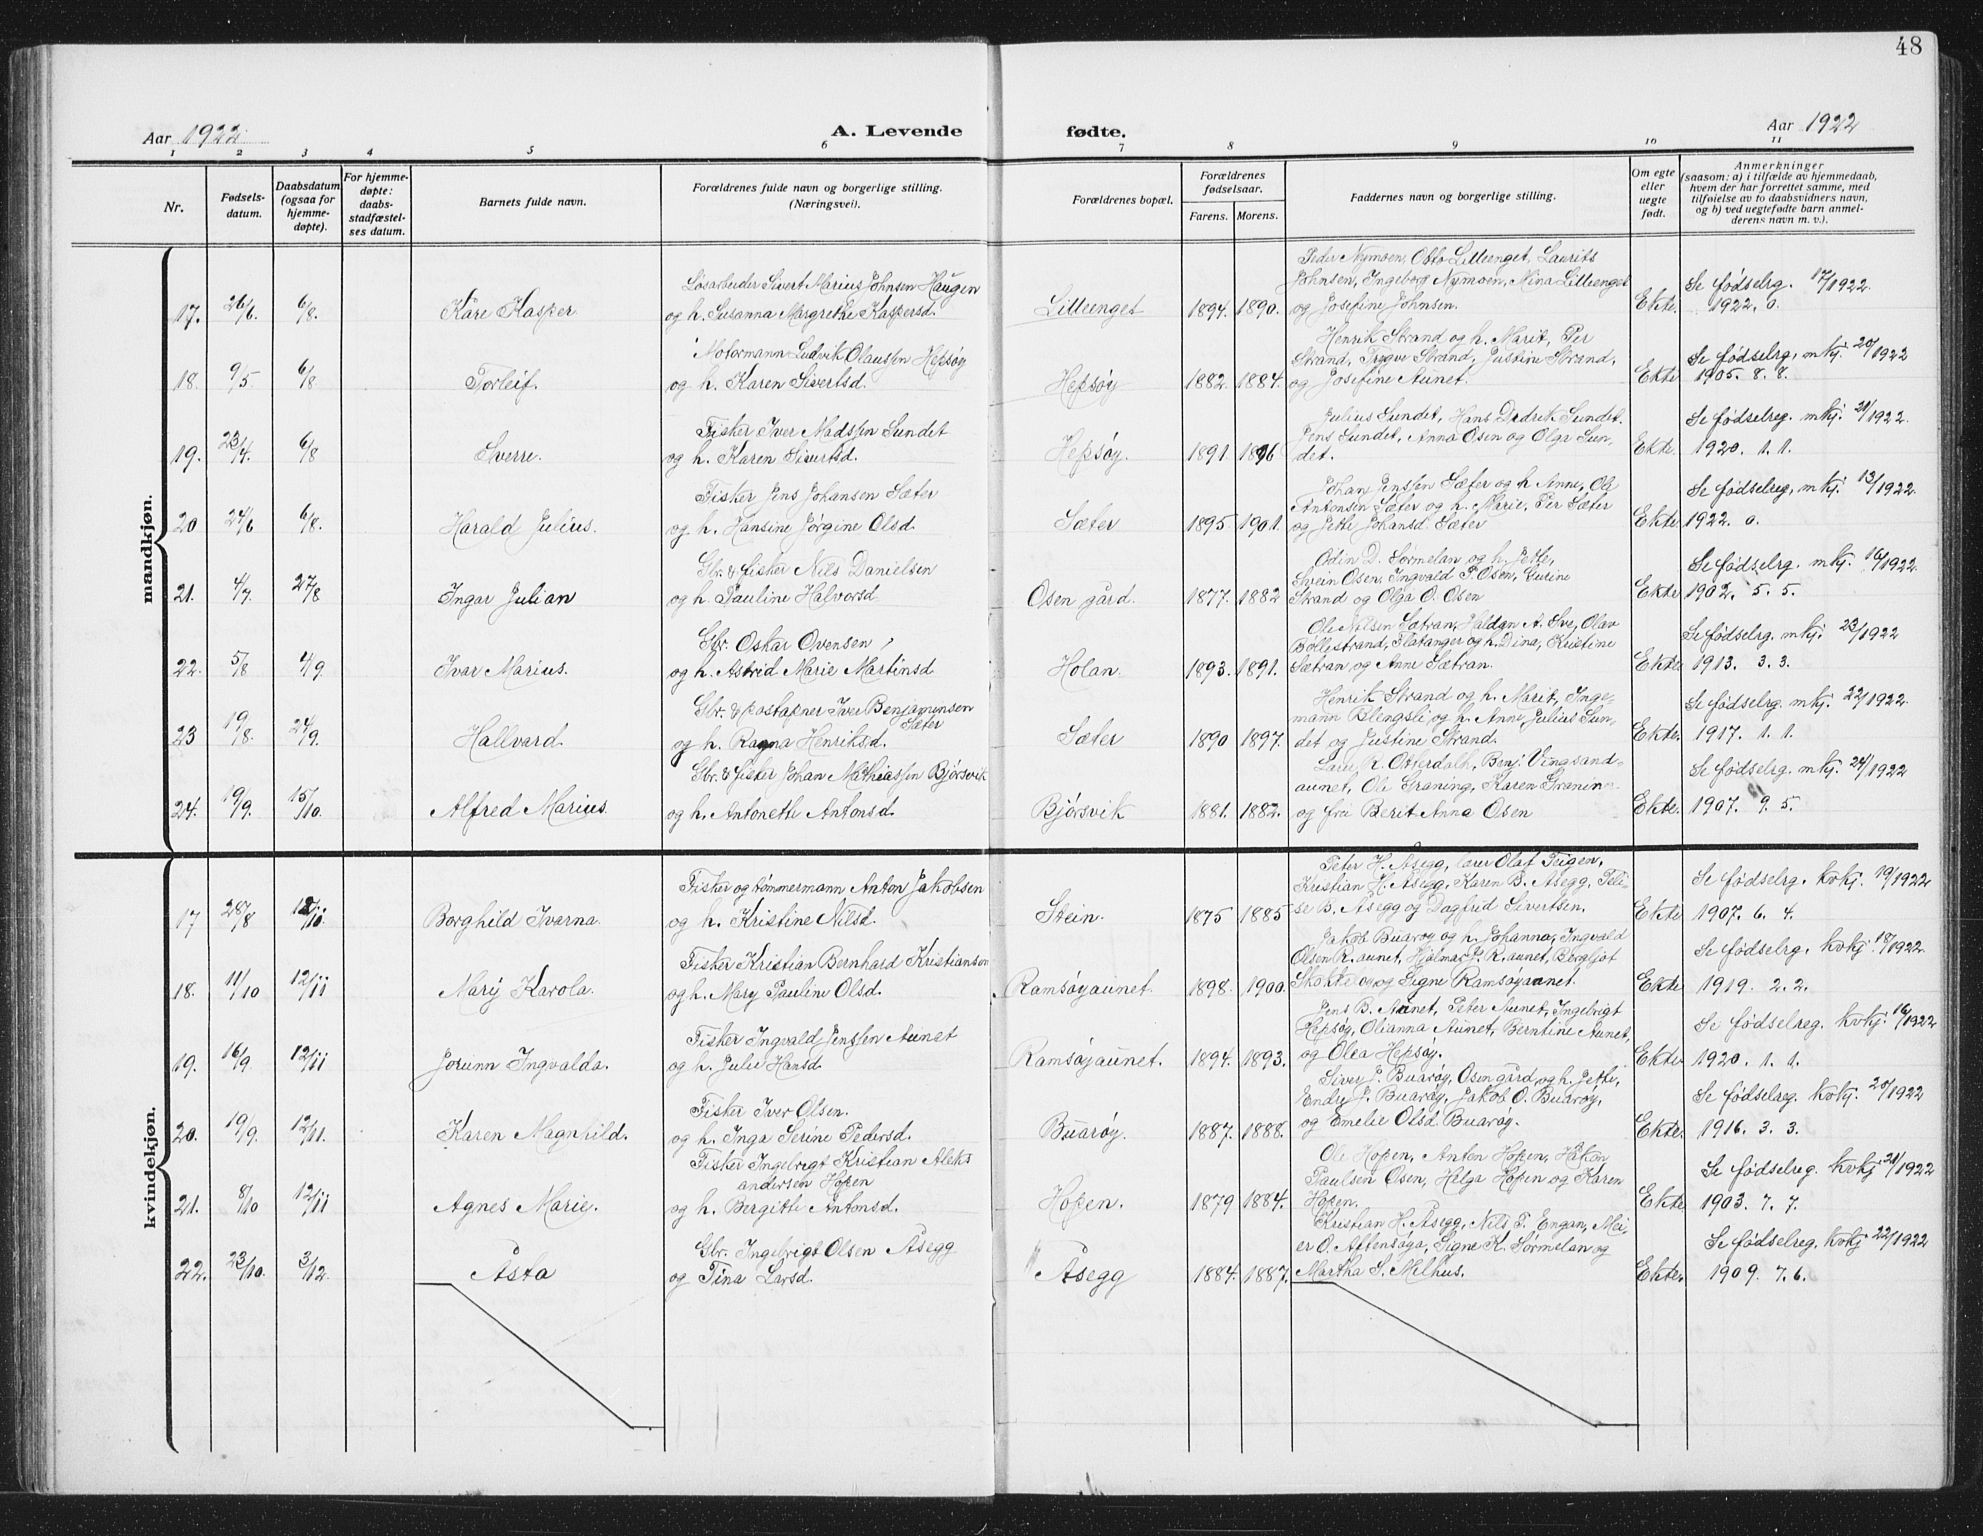 48
Aar 1922
A. Levende fødte.
Aar 1922
1 2 3 4 5 6 7 8 9 10 11
Nr.
Fødsels-
datum.
Daabsdatum
(ogsaa for
hjemme-
døpte).
For hjemme-
døpte:
daabs-
stadfæstel-
ses datum.
Barnets fulde navn.
Forældrenes fulde navn og borgerlige stilling.
(Næringsvei).
Forældrenes bopæl.
Forældrenes
fødselsaar.
Farens. Morens.
Faddernes navn og borgerlige stilling.
Om egte
eller
uegte
født.
Anmerkninger
(saasom: a) i tilfælde av hjemmedaab,
hvem der har forrettet samme, med
tilføielse av to daabsvidners navn,
og b) ved uegtefødte barn anmel-
derens navn m. v.).
mandkjøn.
Løsarbeider Sivert Marius Johnsen Haugen
Peder Nymoen, Otto Lilleenget, Laurits
Johnsen, Ingeborg Nymoen, Nina Lilleenget
Se fødselrg. 17/1922
17. 26/6. 6/8. Kåre Kasper. og h. Susanna Margrethe Kaspersd. Lilleenget 1894. 1890. og Josefine Johnsen. Ekte. 1922. 0.
Motormann Ludvik Olaussen Hepsøy
Henrik Strand og h. Marit, Per
Strand, Trygve Strand, Justine Strand,
Se fødselrg, mkj. 20/1922
18. 9/5. 6/8 Torleif. og h. Karen Sivertsd. Hepsøy 1882. 1884. og Josefine Aunet. Ekte 1905. 8. 8.
Fisker Iver Madssen Sundet
Julius Sundet, Hans Dedrek Sundet.
Jens Sundet, Anna Osen og Olga Sun-
Se fødselreg. mkj. 21/1922.
19. 23/4. 6/8 Sverre. og h. Karen Sivertsd. Hepsøy. 1891. 1896 det. Ekte. 1920. 1. 1.
Fisker Jens Johansen Sæter
Johan Jenssen Sæter og h Anne, Ole
Antonsen Sæter og h. Marie, Per Sæter
Se fødselreg, mkj. 13/1922.
20 24/6 6/8. Harald Julius. og h. Hansine Jørgine Olsd. Sæter 1895 1901. og Jette Johansd Sæter Ekte 1922. 0.
Gbr. & fisker Nils Danielsen
Odin D. Sørmelan og h. Jette,
Svein Osen, Ingvald P. Osen, Gurine
Se fødselrg. mkj. 16/1922.
21. 4/7. 27/8 Ingar Julian og h. Pauline Halvorsd. Osen gård. 1877. 1882 Strand og Olga O. Osen Ekte 1902. 5. 5.
Gbr. Oskar Ovensen
Ole Nilsen Sætran, Haldan A. Sve, Olav
Bøllestrand, Flatanger og h. Dina, Kristine
Se fødselrg. mkj. 23/1922
22. 5/8 4/9. Ivar Marius. og h. Astrid Marie Martinsd Holan. 1893. 1891. Sætran og Anne Sætran. Ekte. 1913. 3. 3.
Gbr. & poståpner Iver Benjaminsen
Sæter
Henrik Strand og h. Marit, Inge-
mann Blengsli og h. Anne, Julius Sun-
Se fødselrg. mkj. 22/1922.
23 19/8. 24/9. Hallvard. og h. Ragna Henriksd. Sæter 1890 1897. det og Justine Strand. Ekte. 1917. 1. 1.
Gbr. & fisker Johan Mathiassen Bjørsvik
Lars R. Otterdalh, Benj. Vingsand-
aunet, Ole Graning, Karen Granin
Se fødselrg. mkj. 24/1922
24. 19/9. 15/10. Alfred Marius. og h. Antonette Antonsd. Bjørsvik 1881. 1882. og frøi Berit Anna Osen Ekte. 1907. 9. 5.
kvindekjøn.
Fisker og tømmermann Anton Jakobsen
Peter H. Asegg, lærer Olaf Teigen,
Kristian H. Asegg, Karen B. Asegg, Peli-
Se fødselrg. kvkj. 19/1922
17 28/8 Borghild Ivarna. og h. Kristine Nilsd. Stein. 1875 1885 se B. Asegg og Dagfrid Sivertsen. Ekte 1907. 6. 4.
Fisker Kristian Bernhard Kristiansen
Jakob Buarøy og h. Johanna, Ingvald
Olsen R. aunet, Hjalmar J. R. aunet, Bergljot
Se fødselrg. kvkj. 18/1922.
18. 11/10 12/11 Mary Karola. og h. Mary Pauline Olsd. Ramsøyaunet. 1898. 1900. og Signe Ramsøyaunet. Ekte 1919. 2. 2.
Fisker Ingvald Jenssen Aunet
Jens B. Aunet, Peter Aunet, Ingebrigt
Hepsøy, Olianna Aunet, Berntine Aunet,
Se fødselreg. kvkj. 16/1922
19. 16/9. 12/11 Jorunn Ingvalda. og h. Julie Hansd. Ramsøyaunet. 1894. 1893. og Olea Hepsøy. Ekte 1920. 1. 1.
Fisker Iver Olsen.
Siver J. Buarøy, Osen gård og h. Jette,
Endre J. Buarøy, Jakob O. Buarøy,
Se fødselreg. kvkj. 20/1922
20. 19/9. 12/11. Karen Magnhild. og h. Inga Serine Pedersd. Buarøy. 1887. 1888. og Emelie Olsd Buarøy. Ekte. 1916. 3. 3.
Fisker Ingebrigt Kristian Aleks
andersen Hopen
Ole Hopen, Anton Hopen, Håkon
Paulsen Osen, Helga Hopen og Karen
Se fødselreg. kvkj 21/1922
21. 8/10 12/11 Agnes Marie. og h. Bergitte Antonsd. Hopen. 1879 1884. Hopen. Ekte 1903. 7. 7.
Gbr. Ingebrigt Olsen Åsegg
Kristian H. Asegg, Nils P. Engan, Mei-
er O. Aftensøya, Signe K. Sørmelan og
Se fødselreg. kvkj 22/1922
22. 23/10. 3/12. Åsta og Tina Larsd. Åsegg 1884. 1887. Martha S. Melhus. Ekte. 1909. 7. 6.